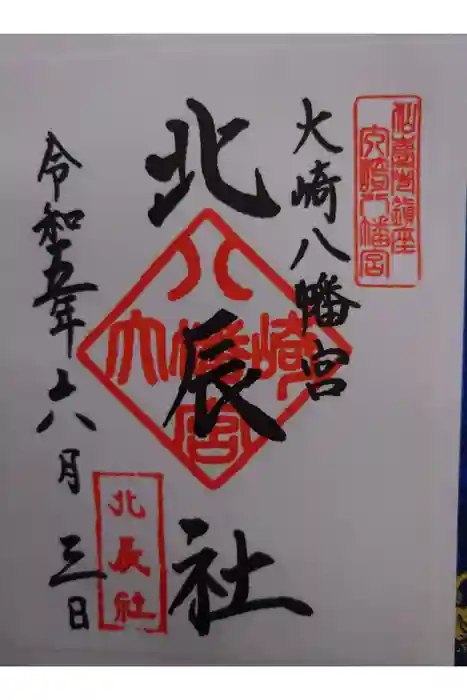 仙臺古鎮座
大崎八幡宮
大崎八幡宮
北辰社
八
大幡崎
宮
北辰社
令和五年六月三日